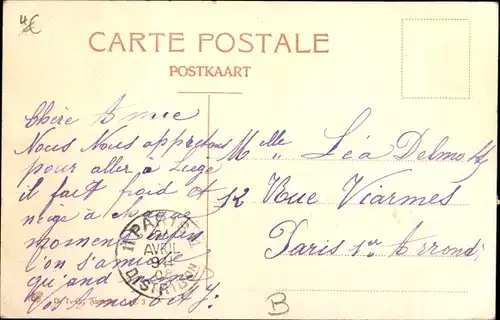 4€
CARTE POSTALE
POSTKAART
Chère Amie
Nous Nous apprêtons
pour aller à Liège
il fait froid et
neige à chaque
moment enfin
l'on s'amuse
quand même
Melle Léa Delmotz
12 Rue Viarmes
Paris 1er Arrond.
PARIS
AVRIL
DISTRIBON
B